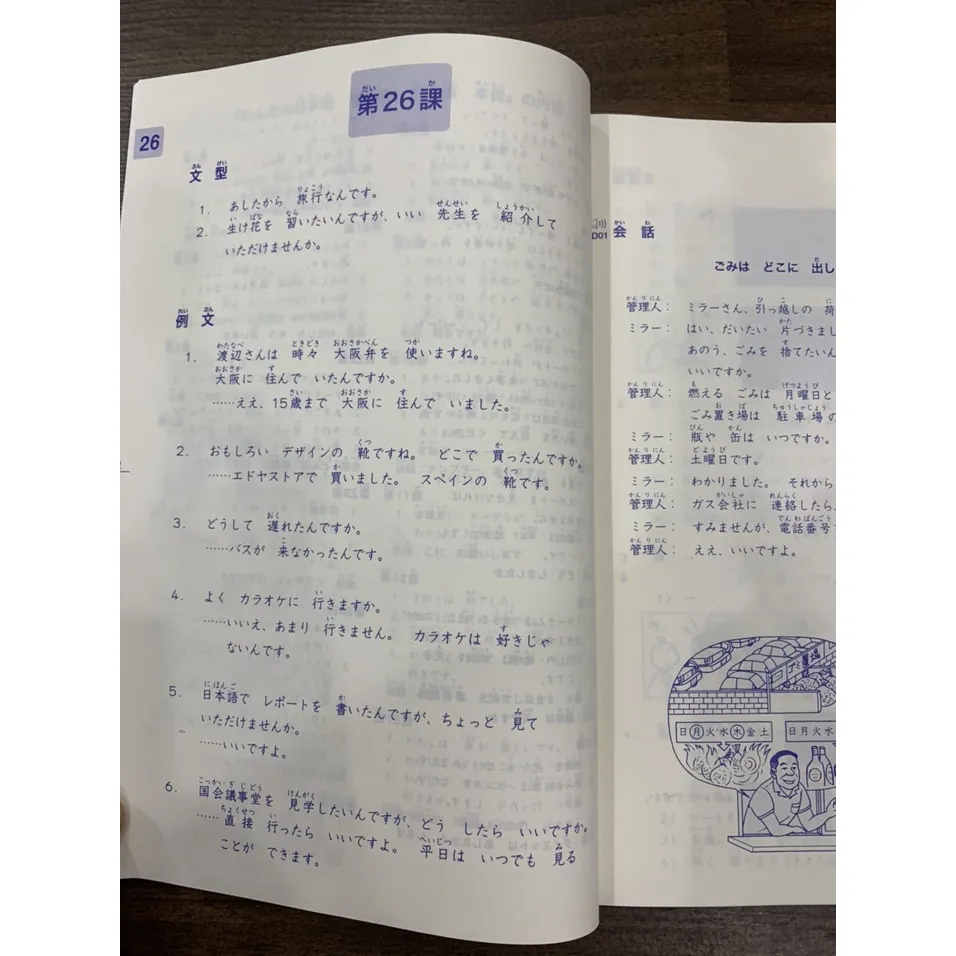 第26課
26
文型
1. あしたから 旅行なんです。
2. 生け花を 習いたいんですが、いい 先生を 紹介して
いただけませんか。
例文
1. 渡辺さんは 時々 大阪弁を 使いますね。
大阪に 住んで いたんですか。
……ええ、15歳まで 大阪に 住んで いました。
2. おもしろい デザインの 靴ですね。 どこで 買ったんですか。
……エドヤストアで 買いました。 スペインの 靴です。
3. どうして 遅れたんですか。
……バスが 来なかったんです。
4. よく カラオケに 行きますか。
……いいえ、あまり 行きません。 カラオケは 好きじゃ
ないんです。
5. 日本語で レポートを 書いたんですが、ちょっと 見て
いただけませんか。
……いいですよ。
6. 国会議事堂を 見学したいんですが、どう したら いいですか。
……直接 行ったら いいですよ。 平日は いつでも 見る
ことが できます。
D01 会話
ごみは どこに 出し
管理人： ミラーさん、引っ越しの 荷
ミラー： はい、だいたい 片づきまし
あのう、ごみを 捨てたいん
いいですか。
管理人： 燃える ごみは 月曜日と
ごみ置き場は 駐車場の
ミラー： 瓶や 缶は いつですか。
管理人： 土曜日です。
ミラー： わかりました。 それから
管理人： ガス会社に 連絡したら、
ミラー： すみませんが、電話番号
管理人： ええ、いいですよ。
日月火水木金土
日月火水